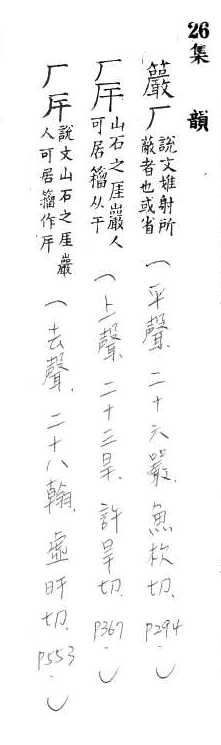 26 集韻
籚厂說文雉射所蔽者也或省（平聲、二十六嚴、魚枚切、P294.）
厂厈山石之厓巖人可居籀从干（上聲、二十三旱、許旱切、P367.）
厂厈說文山石之厓巖人可居籀作厈（去聲、二十八翰、虛旰切、P553.）